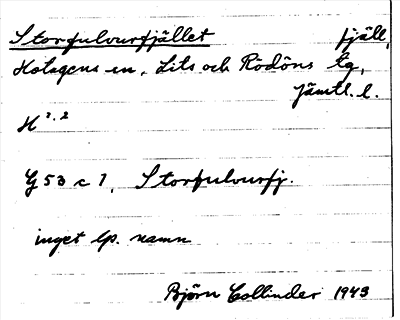 Storfulvurfjället fjäll,
Hotagens sn, Lits och Rödöns tg,
Jämtl. l.
H 2.2
G 53 c 1, Storfulvurfj.
inget lp. namn
Björn Collinder 1943